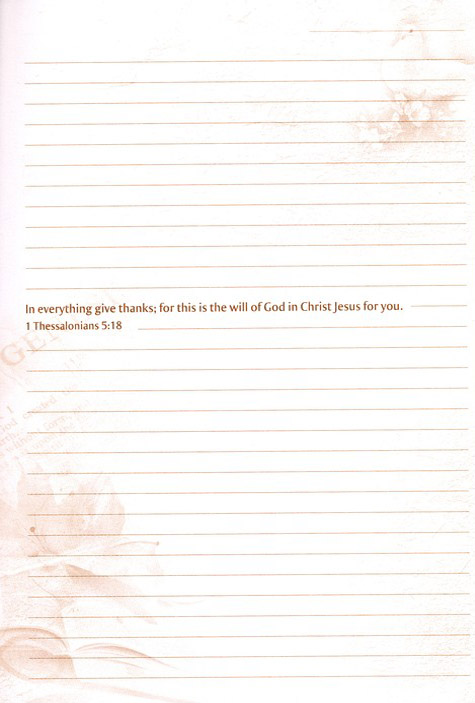 In everything give thanks; for this is the will of God in Christ Jesus for you.
1 Thessalonians 5:18